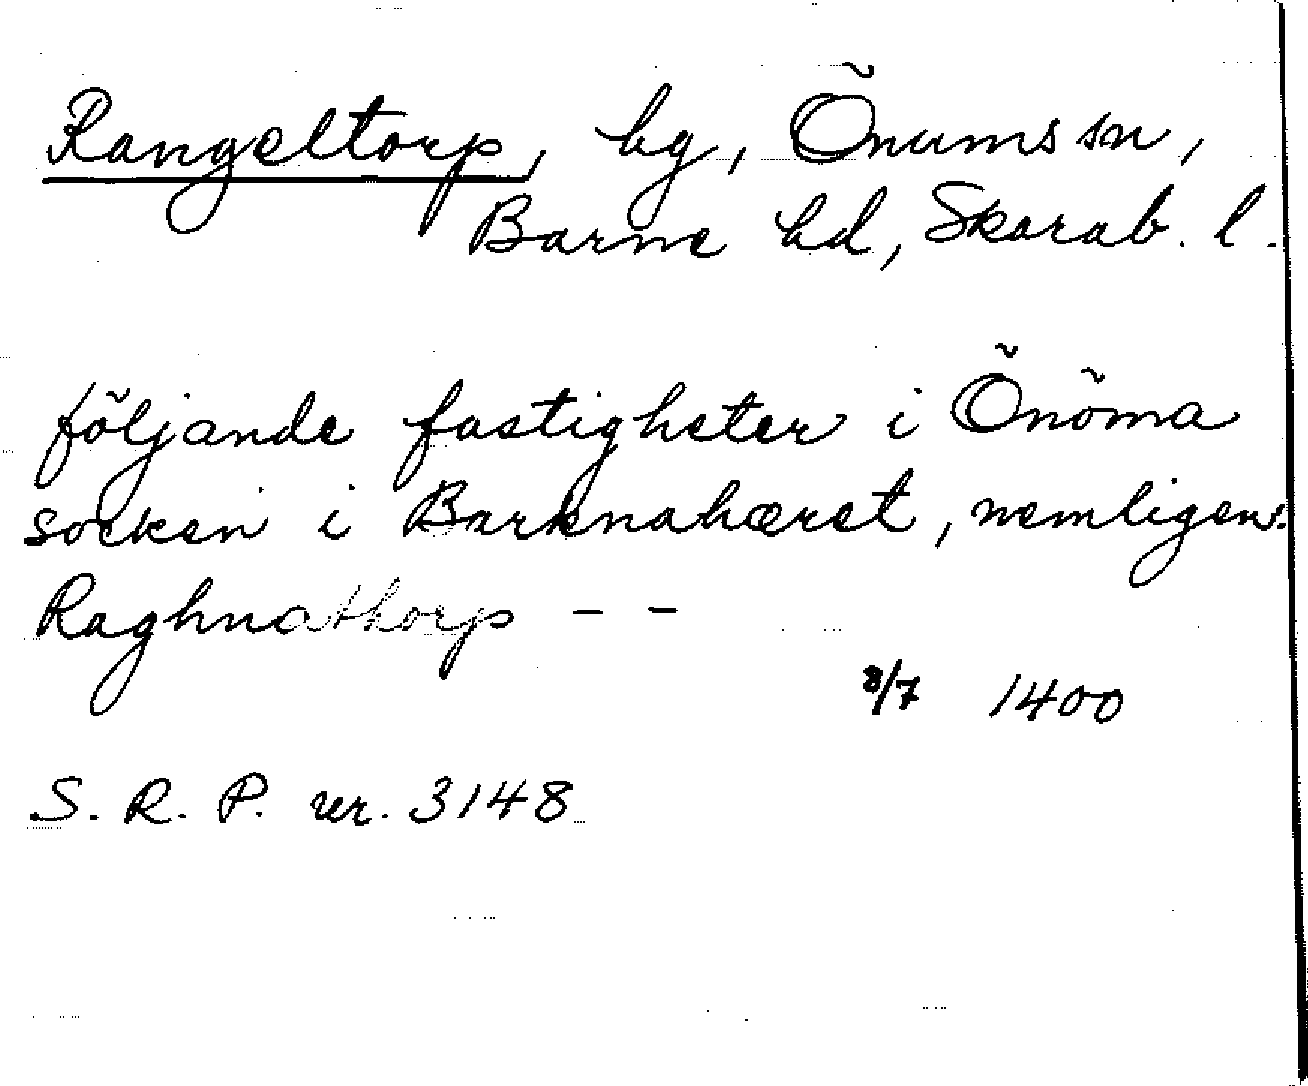 Rangeltorp, hg, Önums sn,
Barne hd, Skarab. l.
följande fastigheter i Önöma
socken i Barknahæret, nemligen:
Raghnathorp – –
8/7 1400
S. R. P. nr. 3148